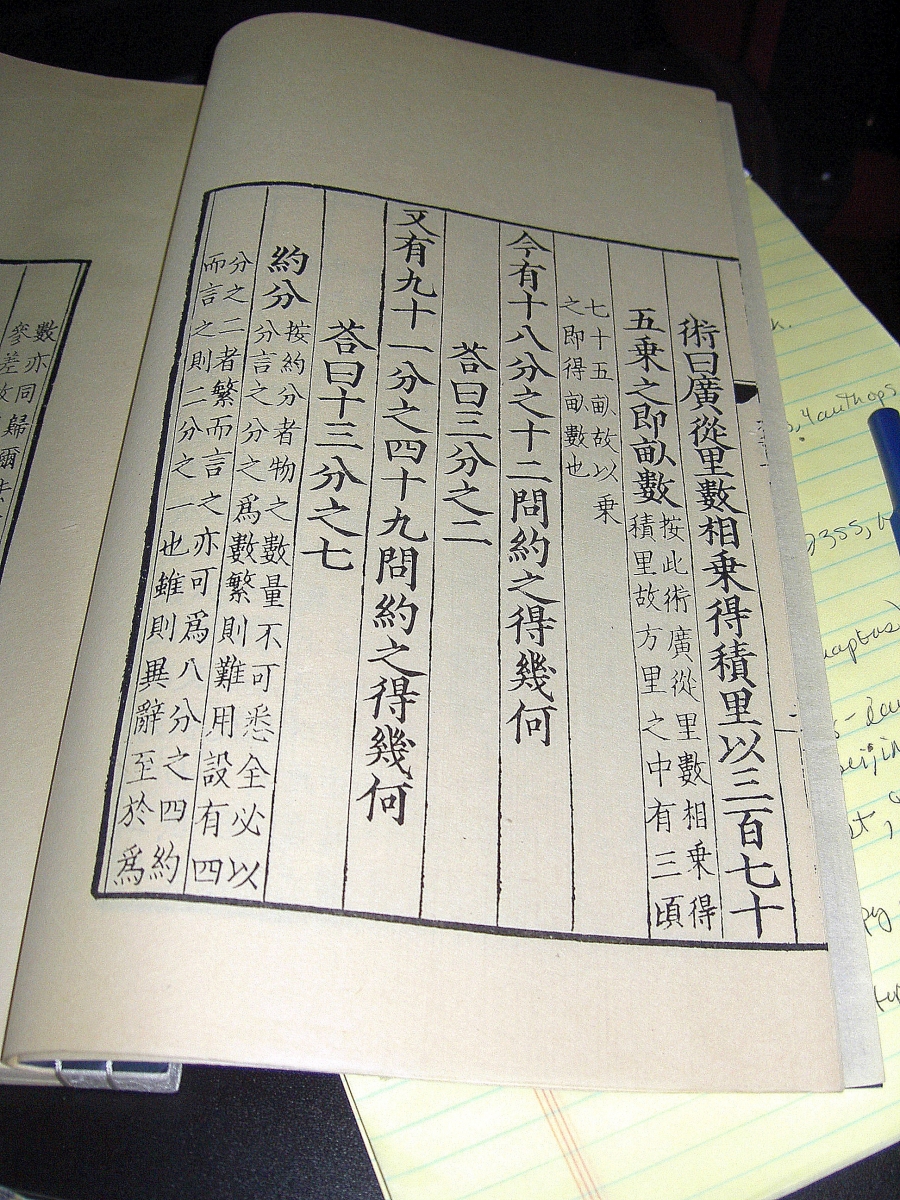 術曰廣從里數相乘得積里以三百七十
五乘之即畝數
按此術廣從里數相乘得
積里故方里之中有三頃
七十五畝故以乘
之即得畝數也
今有十八分之十二問約之得幾何
荅曰三分之二
又有九十一分之四十九問約之得幾何
荅曰十三分之七
約分
按約分者物之數量不可悉全必以
分言之分之爲數繁則難用設有四
分之二者繁而言之亦可爲八分之四約
而言之則二分之一也雖則異辭至於爲
數亦同歸爾
參差